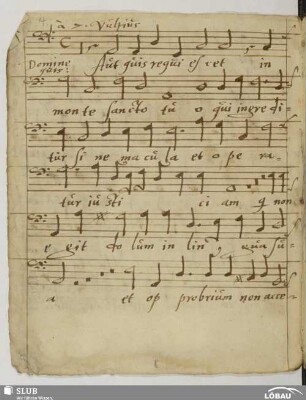 à 7. Vulpius
Domine
quis: Aut quis requi es cet in
monte sancto tu o qui ingre di-
tur si ne ma cu la et o pe ra-
tur iu sti ci am q non
e git do lum in lin, qua su-
a et op probrium non acce-
SLUB
Wir führen Wissen.
LÖBAU